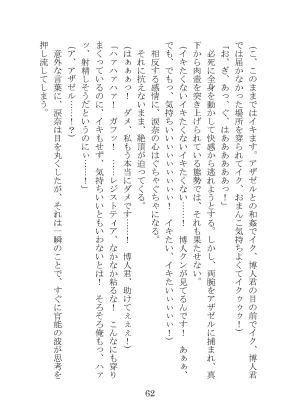 (こ、このままではイキます。アザゼルとの和姦でイク、博人君の目の前でイク、博人君
では届かなかった場所を穿り回されてイク、おまんこ気持ちよくてイクゥゥ!)
「お、ぎ、あっ、ぐ、はあああああっ!」
必死に全身を動かして快感から逃れようとする。しかし、両腕をアザゼルに捕まれ、真
下から肉壺を突き上げられている態勢では、それも果たせない。
(イキたくないイキたくないイキたくないイキたくないイキたくない!博人クンが見てるんです!
でも、でもっ、気持ちいいいぃぃぃ!イキたい、イキたいいぃぃぃ!)
相反する感情に、涙奈の心はぐちゃぐちゃになる。
それに抗えないまま、絶頂が迫ってくる。
(はぁぁぁっ!ダメ、私もう本当にダメです……!博人君、助けてぇぇぇ!)
「ハァハァハァ!ガフッ!……レジスティア、なかなか粘るな!こんなにも穿り
まくっているのに、イキもせず、気持ちいいともいわないとは!そろそろ俺もっ、ハァ
ッ、射精しそうだというのにぃ……!」
(あ、アザゼル……!?)
意外な言葉に、涙奈は目を丸くしたが、それは一瞬のことで、すぐに官能の波が思考を
押し流してしまう。
62